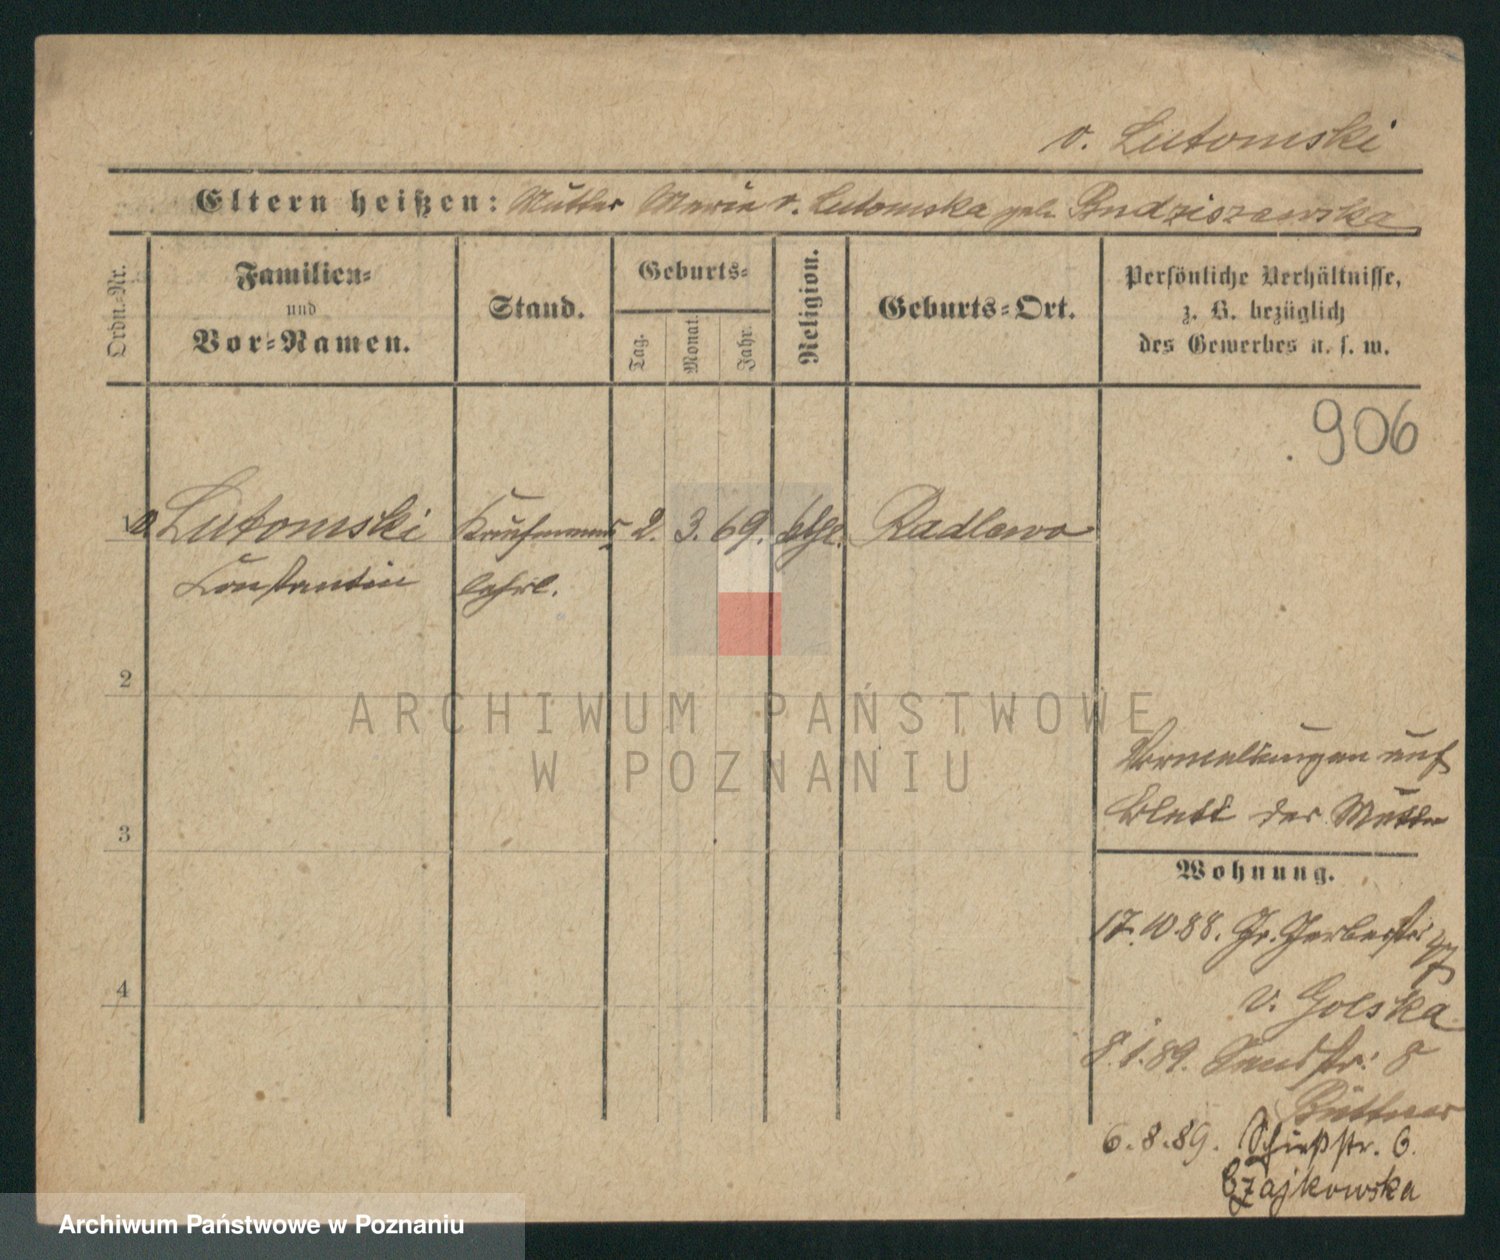 v. Lutomski
Eltern heißen: Mutter Marie v. Lutomska geb. Budziszewska
Ordn.-Nr.
Familien-
und
Vor-Namen.
Stand.
Geburts-
Tag.
Monat.
Jahr.
Religion.
Geburts-Ort.
Persönliche Verhältnisse,
z. B. bezüglich
des Gewerbes u. s. w.
906
1 v. Lutomski Kaufmanns 2. 3. 69. kthl. Radlowo
Constantin lehrl.
2
ARCHIWUM PAŃSTWOWE
W POZNANIU
Vormeldungen auf
Blatt der Mutter
3
Wohnung.
17.10.88. Gr. Gerberstr.
v. Golska
4
8.1.89. Sandstr. 8
Büttner
6.8.89. Schießstr. 6.
Czajkowska
Archiwum Państwowe w Poznaniu